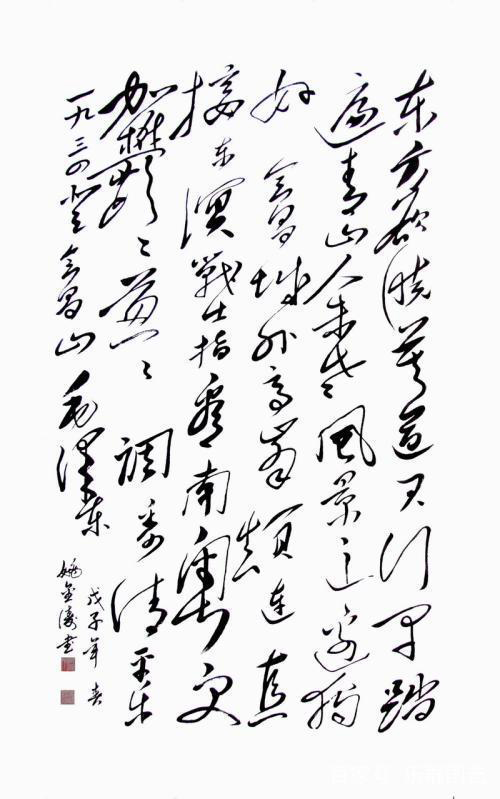 东方欲晓莫道君行早踏
遍青山人未老风景这边独
好会昌城外高峰颠连直
接东溟戰士指看南粤更
加鬱〻葱〻调寄清平乐
一九三四登会昌山毛泽东
戊子年春
姚金涛书